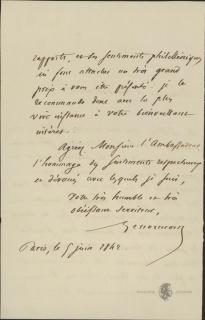 rapports, et ses sentiments philhelléniques
lui font attacher un très grand
prix à vous être présenté. je le
recommande donc avec la plus
vive instance à votre bienveillant
intérêt.
Agréez Monsieur l'Ambassadeur
l'hommage des sentiments respectueux
et dévoués avec lesquels je suis,
Votre très humble et très
obéissant serviteur,
Lenormant
Paris, le 5 juin 1842